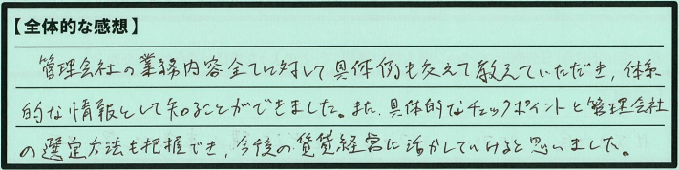 【全体的な感想】
管理会社の業務内容全てに対して具体例も交えて教えていただき、体系
的な情報として知ることができました。また、具体的なチェックポイントと管理会社
の選定方法も把握でき、今後の賃貸経営に活かしていけると思いました。